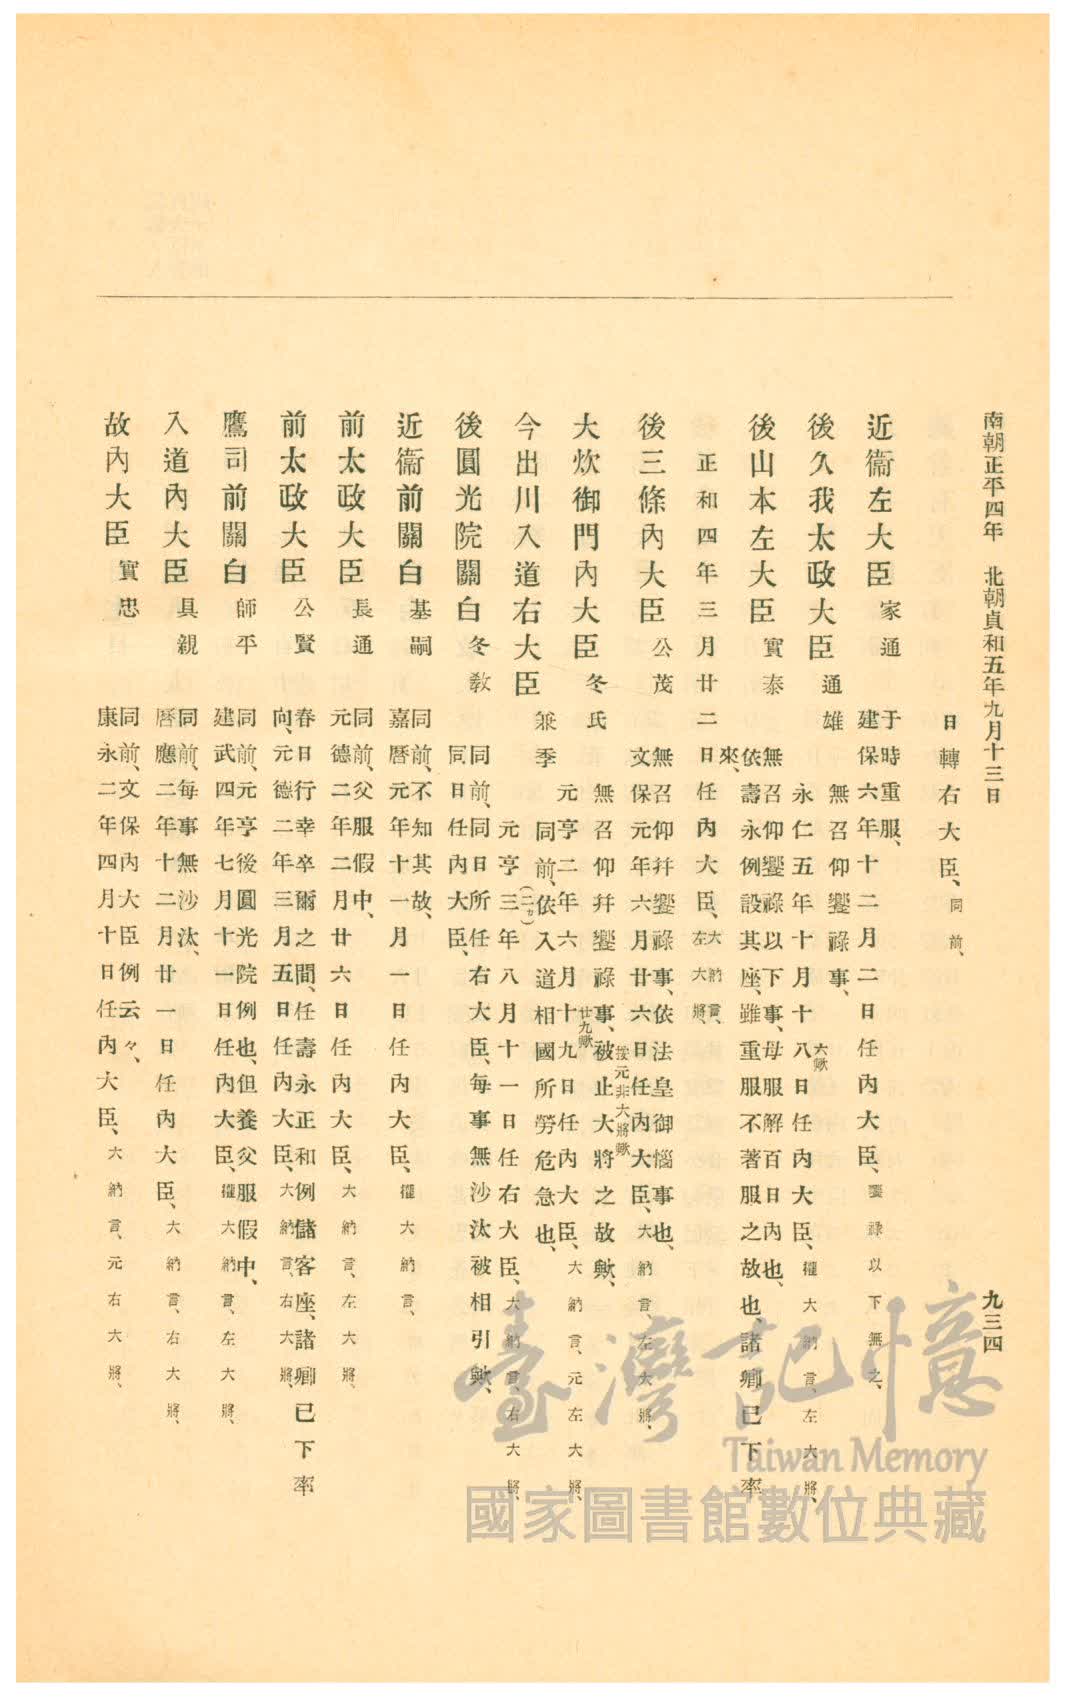 南朝正平四年 北朝貞和五年九月十三日
九三四
日轉右大臣、同前、
近衞左大臣家通
于時重服、
建保六年十二月二日任內大臣、饗祿以下無之、
後久我太政大臣通雄
無召仰饗祿事、
永仁五年十月十八日任內大臣、權大納言、左大將、
六歟
後山本左大臣實泰
無召仰饗祿以下事、母服解百日內也、
依壽永例設其座、雖重服不著服之故也、諸卿已下率
來、
正和四年三月廿二日任內大臣、大納言、左大將、
後三條內大臣公茂
無召仰幷饗祿事、依法皇御惱事也、
文保元年六月廿六日任內大臣、大納言、左大將、
大炊御門內大臣冬氏
無召仰幷饗祿事、被止大將之故歟、
按元非大將歟
元亨二年六月十九日任內大臣、大納言、元左大將、
廿九歟
今出川入道右大臣兼季
同前、依入道相國所勞危急也、
元亨三年八月十一日任右大臣、大納言、右大將、
(二カ)
後圓光院關白冬敎
同前、同日所任右大臣、每事無沙汰被相引歟、
同日任內大臣、
近衞前關白基嗣
同前、不知其故、
嘉曆元年十一月一日任內大臣、權大納言、
前太政大臣長通
同前、父服假中、
元德二年二月廿六日任內大臣、大納言、左大將、
前太政大臣公賢
春日行幸卒爾之間、任壽永正和例儲客座、諸卿已下率
向、元德二年三月五日任內大臣、大納言、右大將、
鷹司前關白師平
同前、元亨後圓光院例也、但養父服假中、
建武四年七月十一日任內大臣、權大納言、左大將、
入道內大臣具親
同前、每事無沙汰、
曆應二年十二月廿一日任內大臣、大納言、右大將、
故內大臣實忠
同前、文保內大臣例云々、
康永二年四月十日任內大臣、大納言、元右大將、
臺灣記憶
Taiwan Memory
國家圖書館數位典藏